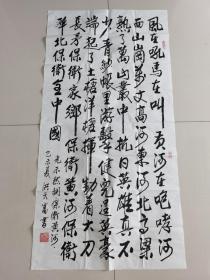 風在吼馬在叫黃河在咆哮河
西山崗萬丈高河東河北高粱
熟了萬山叢中抗日英雄真不
少青紗帳里游擊健兒逞英豪
端起了土槍洋槍揮動着大刀
長矛保衛家鄉保衛黃河保衛
華北保衛全中國
光未然詞保衛黃河